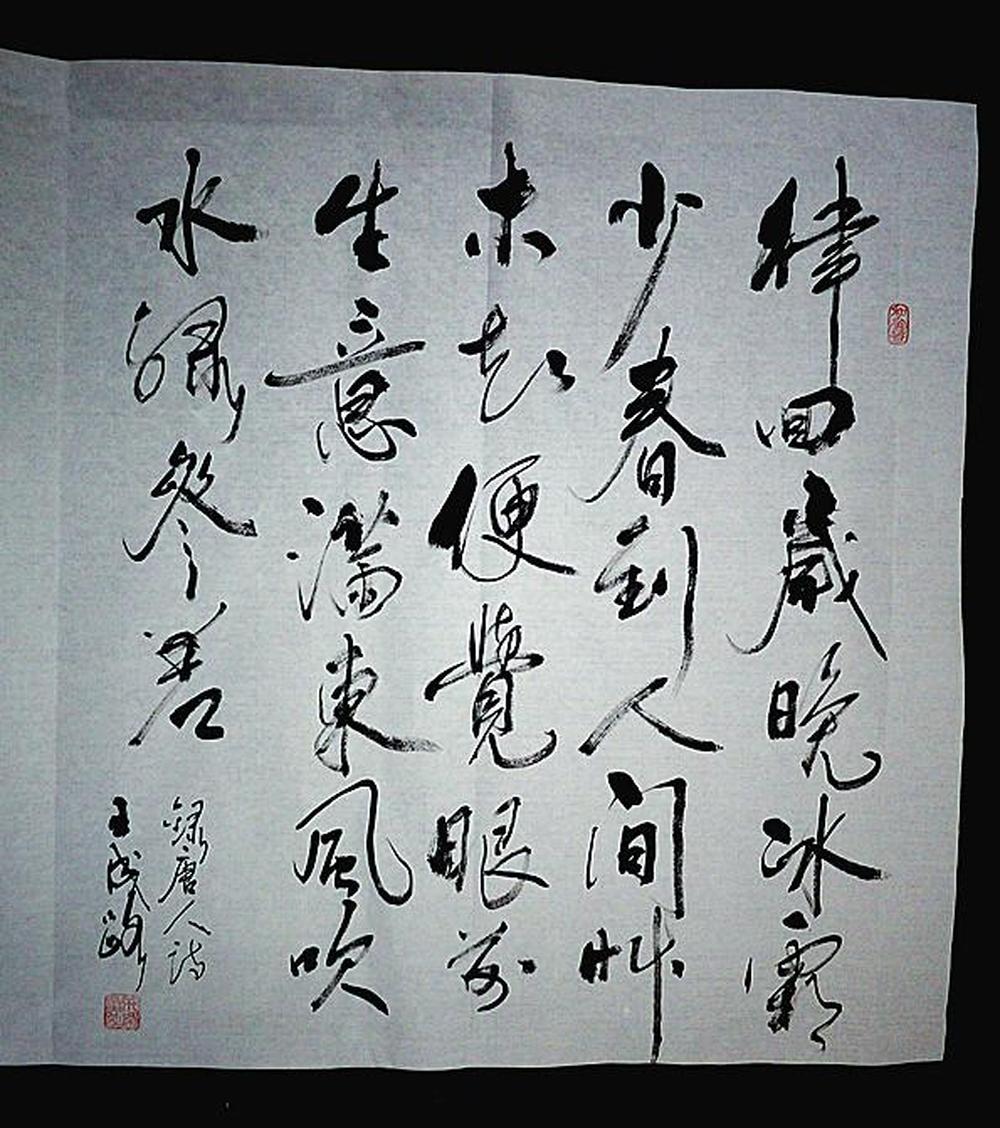 律回歲晚冰霜
少春到人間艸
木知便覺眼前
生意滿東風吹
水綠參差
錄唐人詩
王